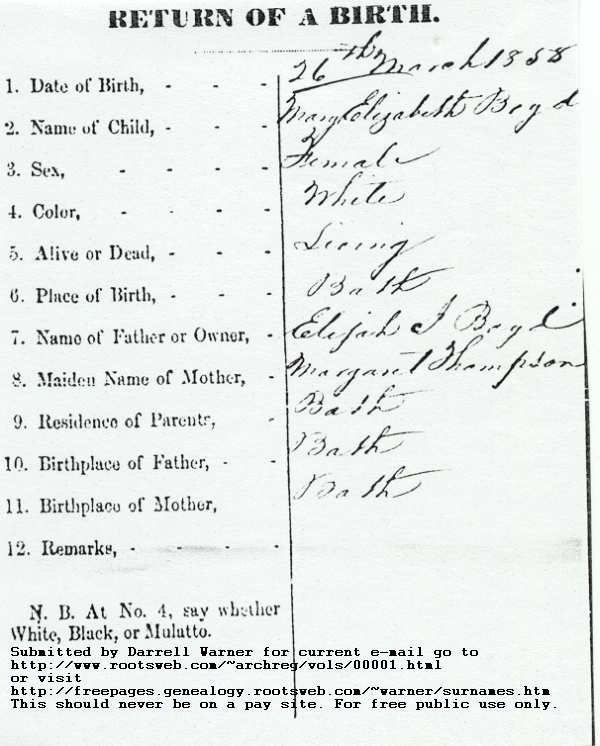 RETURN OF A BIRTH.
1. Date of Birth, - - - 26th March 1858
2. Name of Child, - - - Mary Elizabeth Boyd
3. Sex, - - - - Female
4. Color, - - - - White
5. Alive or Dead, - - - Living
6. Place of Birth, - - - Bath
7. Name of Father or Owner, - Elijah J Boyd
8. Maiden Name of Mother, - Margaret Thompson
9. Residence of Parents, - Bath
10. Birthplace of Father, - - Bath
11. Birthplace of Mother, Bath
12. Remarks, - - - -
N. B. At No. 4, say whether
White, Black, or Mulatto.
Submitted by Darrell Warner for current e-mail go to
http://www.rootsweb.com/~archreg/vols/00001.html
or visit
http://freepages.genealogy.rootsweb.com/~warner/surnames.htm
This should never be on a pay site. For free public use only.